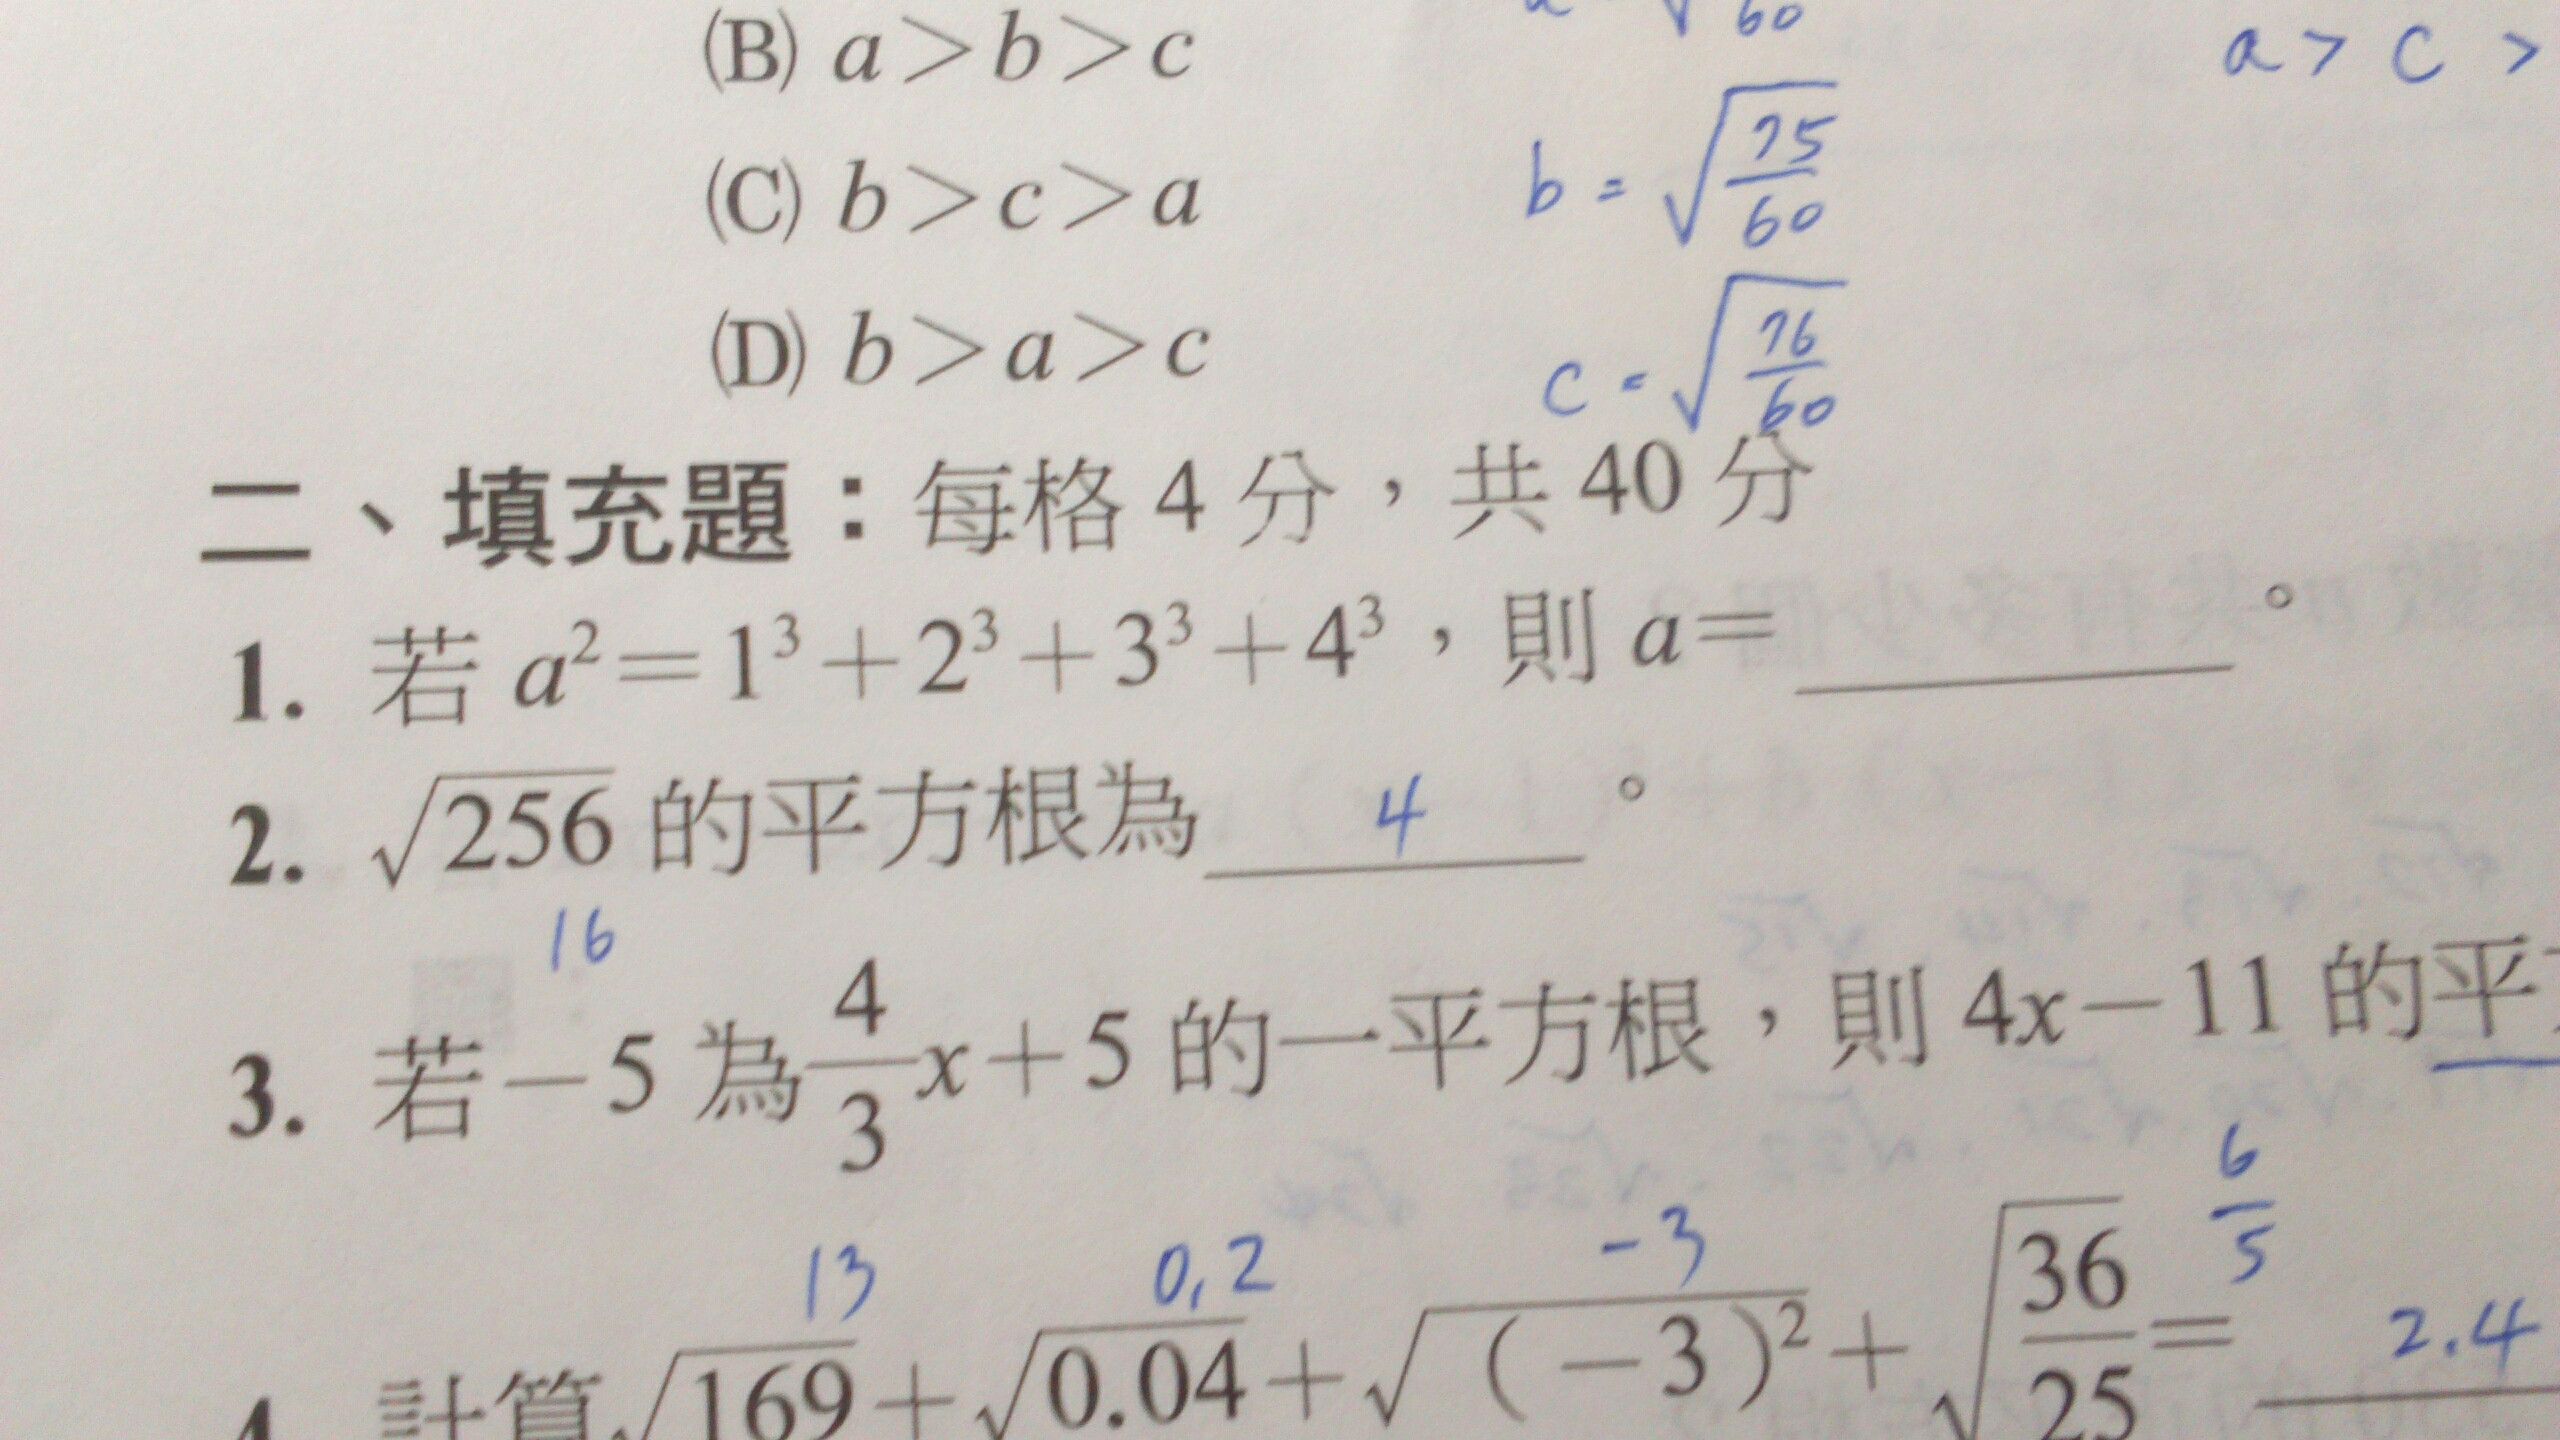 (B) a>b>c
60
a > c >
(C) b>c>a
b = √75/60
(D) b>a>c
c = √76/60
二、填充題：每格 4 分，共 40 分
1. 若 a²=1³+2³+3³+4³，則 a=＿＿＿。
2. √256 的平方根為 4 。
16
3. 若－5 為 4/3 x+5 的一平方根，則 4x－11 的平
13 0,2 -3 6/5
計算√169+√0.04+√(－3)²+√36/25= 2.4